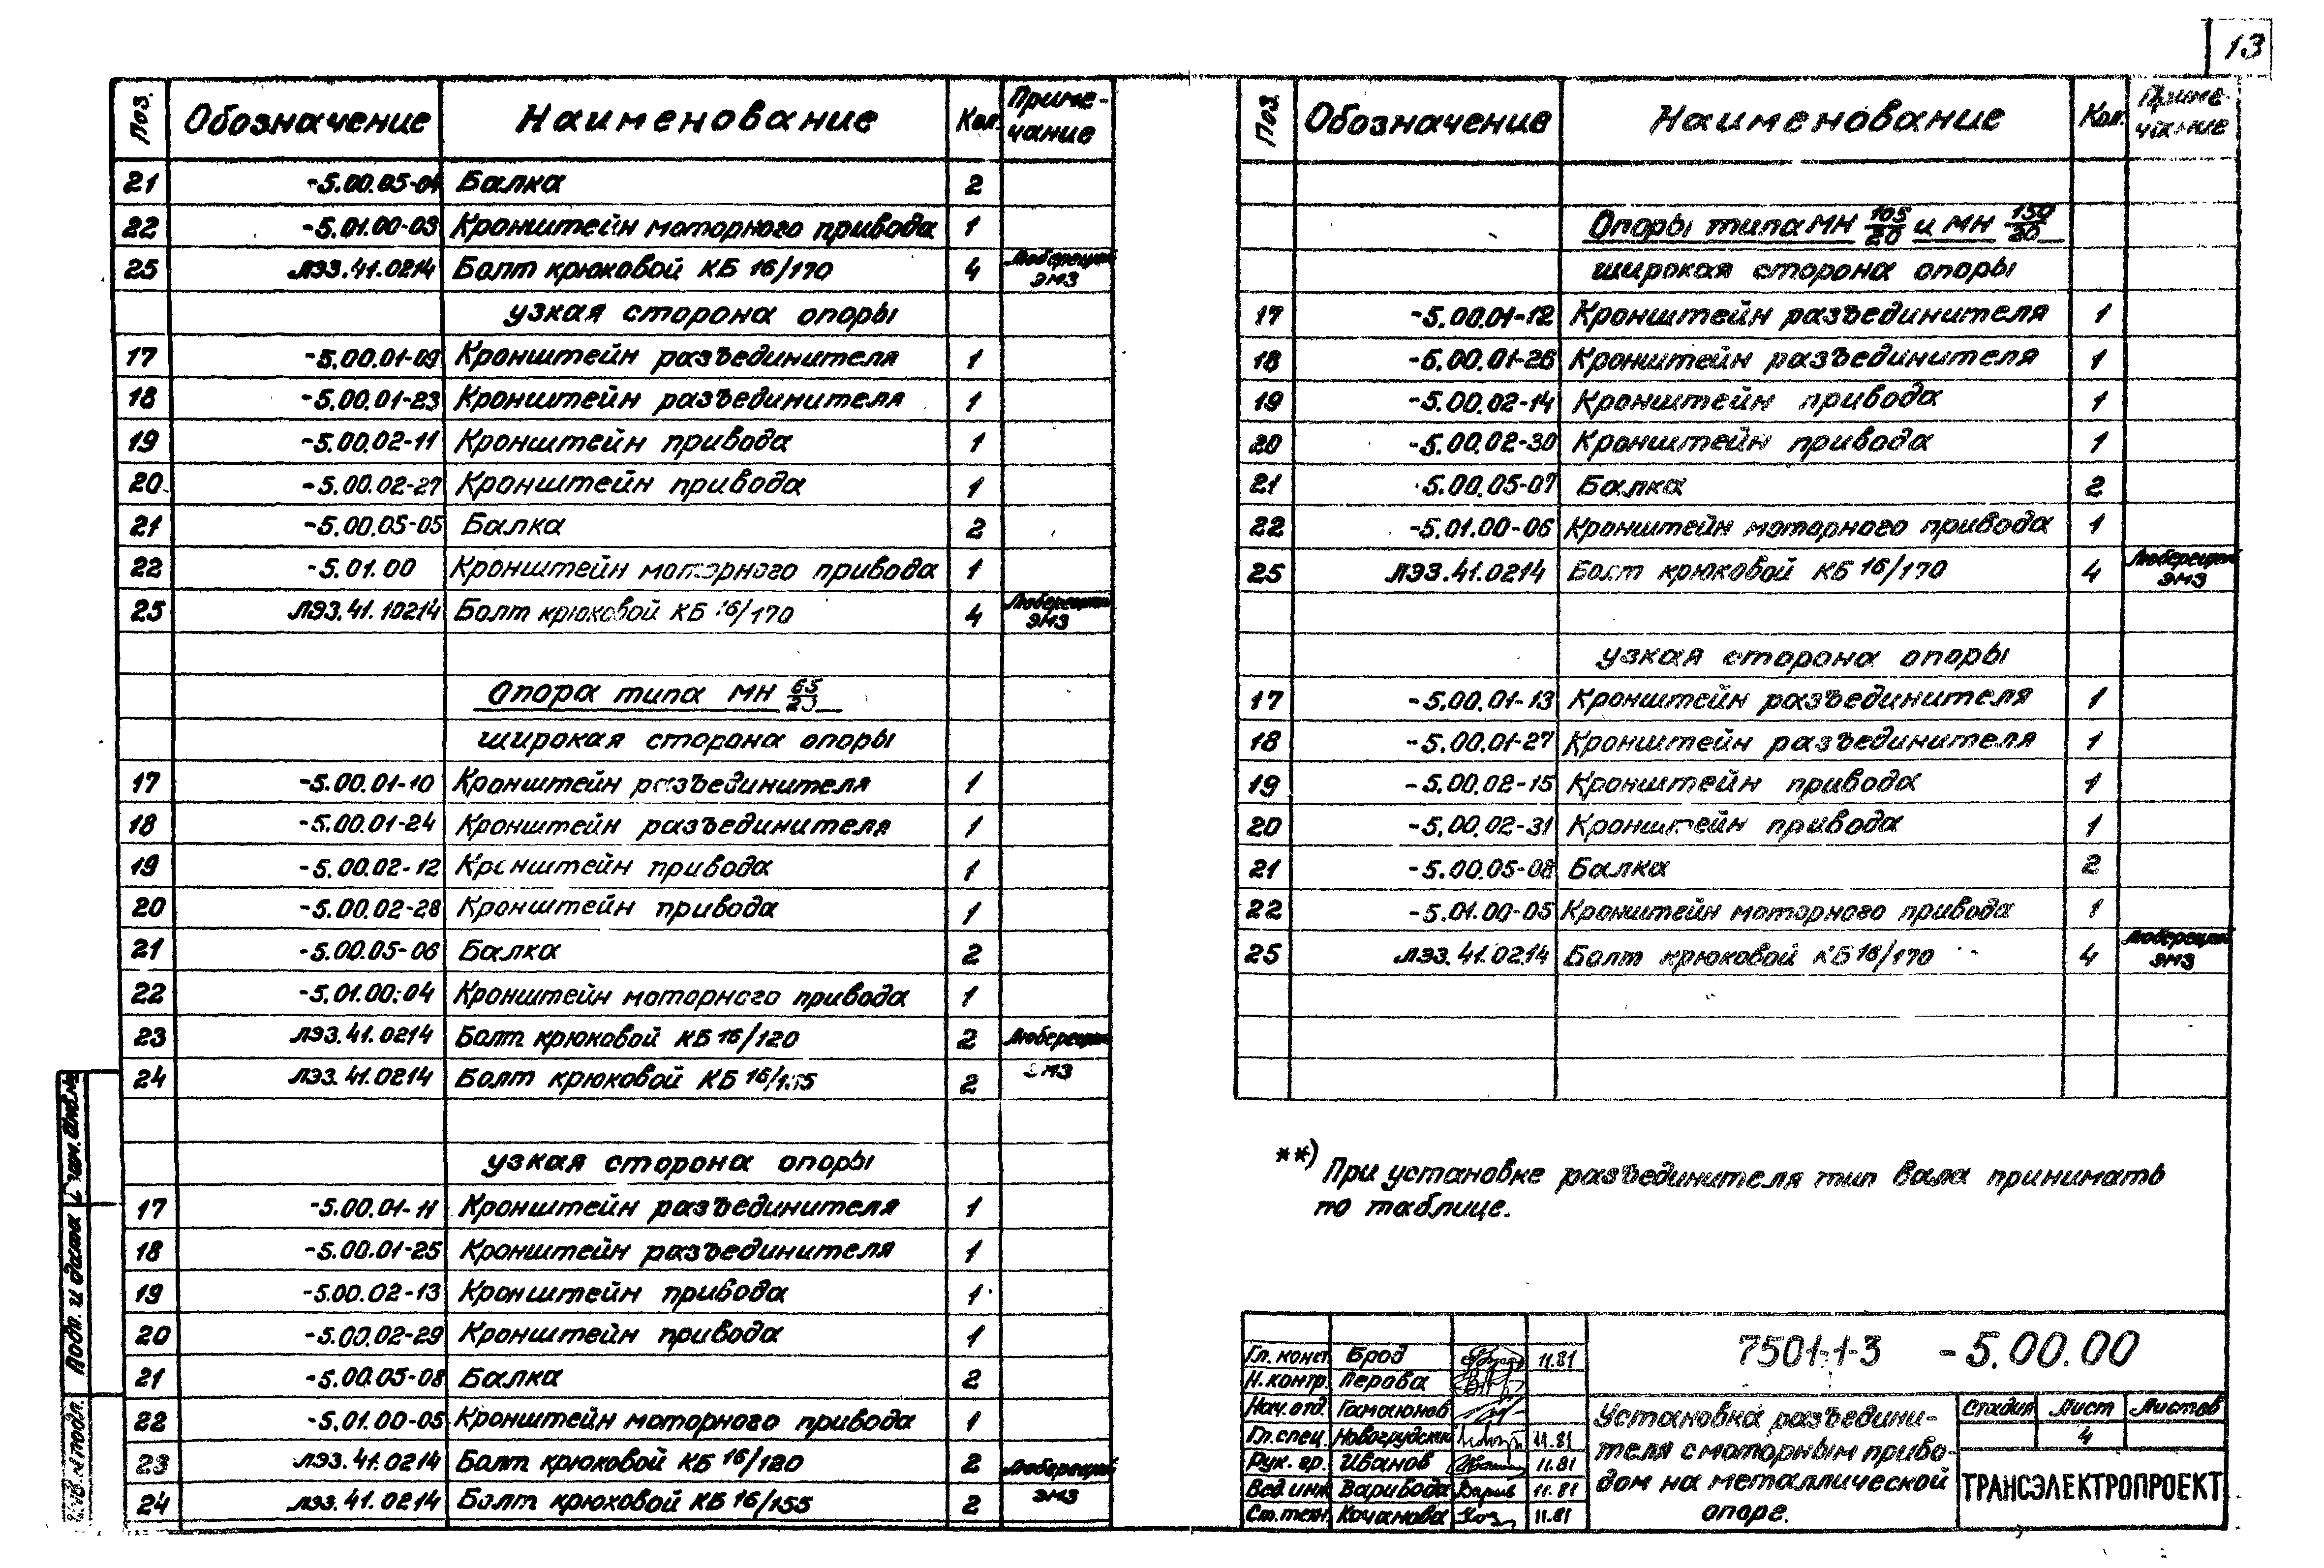 13
Поз. Обозначение Наименование Кол. Приме-
чание
21 -5.00.05-04 Балка 2
22 -5.01.00-03 Кронштейн моторного привода 1
25 ЛЭЗ.41.0214 Болт крюковой КБ 16/170 4 Люберецкий ЭМЗ
узкая сторона опоры
17 -5.00.01-09 Кронштейн разъединителя 1
18 -5.00.01-23 Кронштейн разъединителя 1
19 -5.00.02-11 Кронштейн привода 1
20 -5.00.02-27 Кронштейн привода 1
21 -5.00.05-05 Балка 2
22 -5.01.00 Кронштейн моторного привода 1
25 ЛЭЗ.41.10214 Болт крюковой КБ 16/170 4 Люберецкий ЭМЗ
Опора типа МН 65/23
широкая сторона опоры
17 -5.00.01-10 Кронштейн разъединителя 1
18 -5.00.01-24 Кронштейн разъединителя 1
19 -5.00.02-12 Кронштейн привода 1
20 -5.00.02-28 Кронштейн привода 1
21 -5.00.05-06 Балка 2
22 -5.01.00-04 Кронштейн моторного привода 1
23 ЛЭЗ.41.0214 Болт крюковой КБ 16/120 2 Люберецкий
24 ЛЭЗ.41.0214 Болт крюковой КБ 16/155 2 ЭМЗ
узкая сторона опоры
17 -5.00.01-11 Кронштейн разъединителя 1
18 -5.00.01-25 Кронштейн разъединителя 1
19 -5.00.02-13 Кронштейн привода 1
20 -5.00.02-29 Кронштейн привода 1
21 -5.00.05-08 Балка 2
22 -5.01.00-05 Кронштейн моторного привода 1
23 ЛЭЗ.41.0214 Болт крюковой КБ 16/120 2 Люберецкий
24 ЛЭЗ.41.0214 Болт крюковой КБ 16/155 2 ЭМЗ
Поз. Обозначение Наименование Кол. Приме-
чание
Опоры типа МН 105/20 и МН 150/20
широкая сторона опоры
17 -5.00.01-12 Кронштейн разъединителя 1
18 -5.00.01-26 Кронштейн разъединителя 1
19 -5.00.02-14 Кронштейн привода 1
20 -5.00.02-30 Кронштейн привода 1
21 -5.00.05-07 Балка 2
22 -5.01.00-06 Кронштейн моторного привода 1
25 ЛЭЗ.41.0214 Болт крюковой КБ 16/170 4 Люберецкий ЭМЗ
узкая сторона опоры
17 -5.00.01-13 Кронштейн разъединителя 1
18 -5.00.01-27 Кронштейн разъединителя 1
19 -5.00.02-15 Кронштейн привода 1
20 -5.00.02-31 Кронштейн привода 1
21 -5.00.05-08 Балка 2
22 -5.01.00-05 Кронштейн моторного привода 1
25 ЛЭЗ.41.0214 Болт крюковой КБ 16/170 4 Люберецкий ЭМЗ
**) При установке разъединителя тип вала принимать
по таблице.
7501-1-3 -5.00.00
Гл. конст. Брод 11.81
Н. контр. Перова
Нач. отд. Гамаюнов
Гл. спец. Новогрудский 11.81
Рук. гр. Иванов 11.81
Вед. инж. Варивода 11.81
Ст. техн. Кочанова 11.81
Установка разъедини-
теля с моторным приво-
дом на металлической
опоре.
Стадия Лист Листов
4
ТРАНСЭЛЕКТРОПРОЕКТ
Взам. инв. №
Подп. и дата
Инв. № подл.